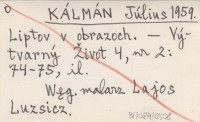 KÁLMÁN Július 1959.
Liptov v obrazoch. — Vý-
tvarný Život 4, nr 2:
74-75, il.
Węg. malarz Lajos
Luzsicz.